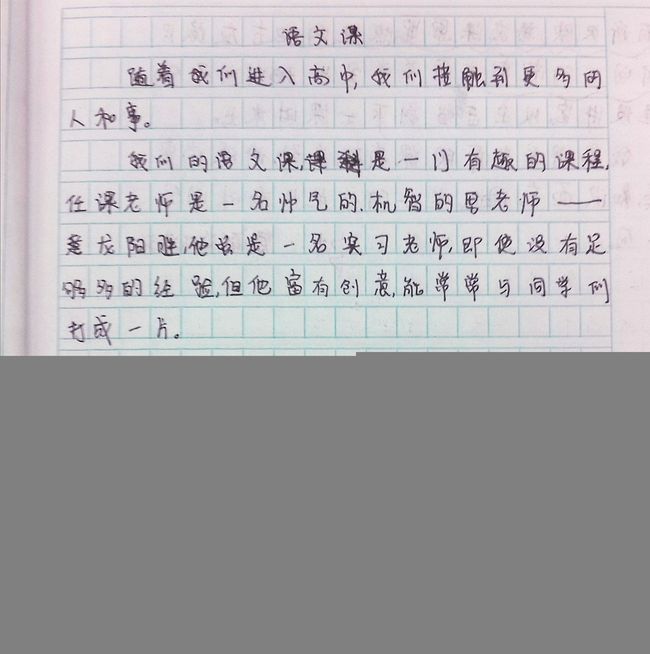 语文课
随着我们进入高中,我们接触到更多的
人和事。
我们的语文课,是一门有趣的课程,
任课老师是一名帅气的、机智的男老师——
龙阳胜,他虽是一名实习老师,即使没有足
够多的经验,但他富有创意,能常常与同学们
打成一片。